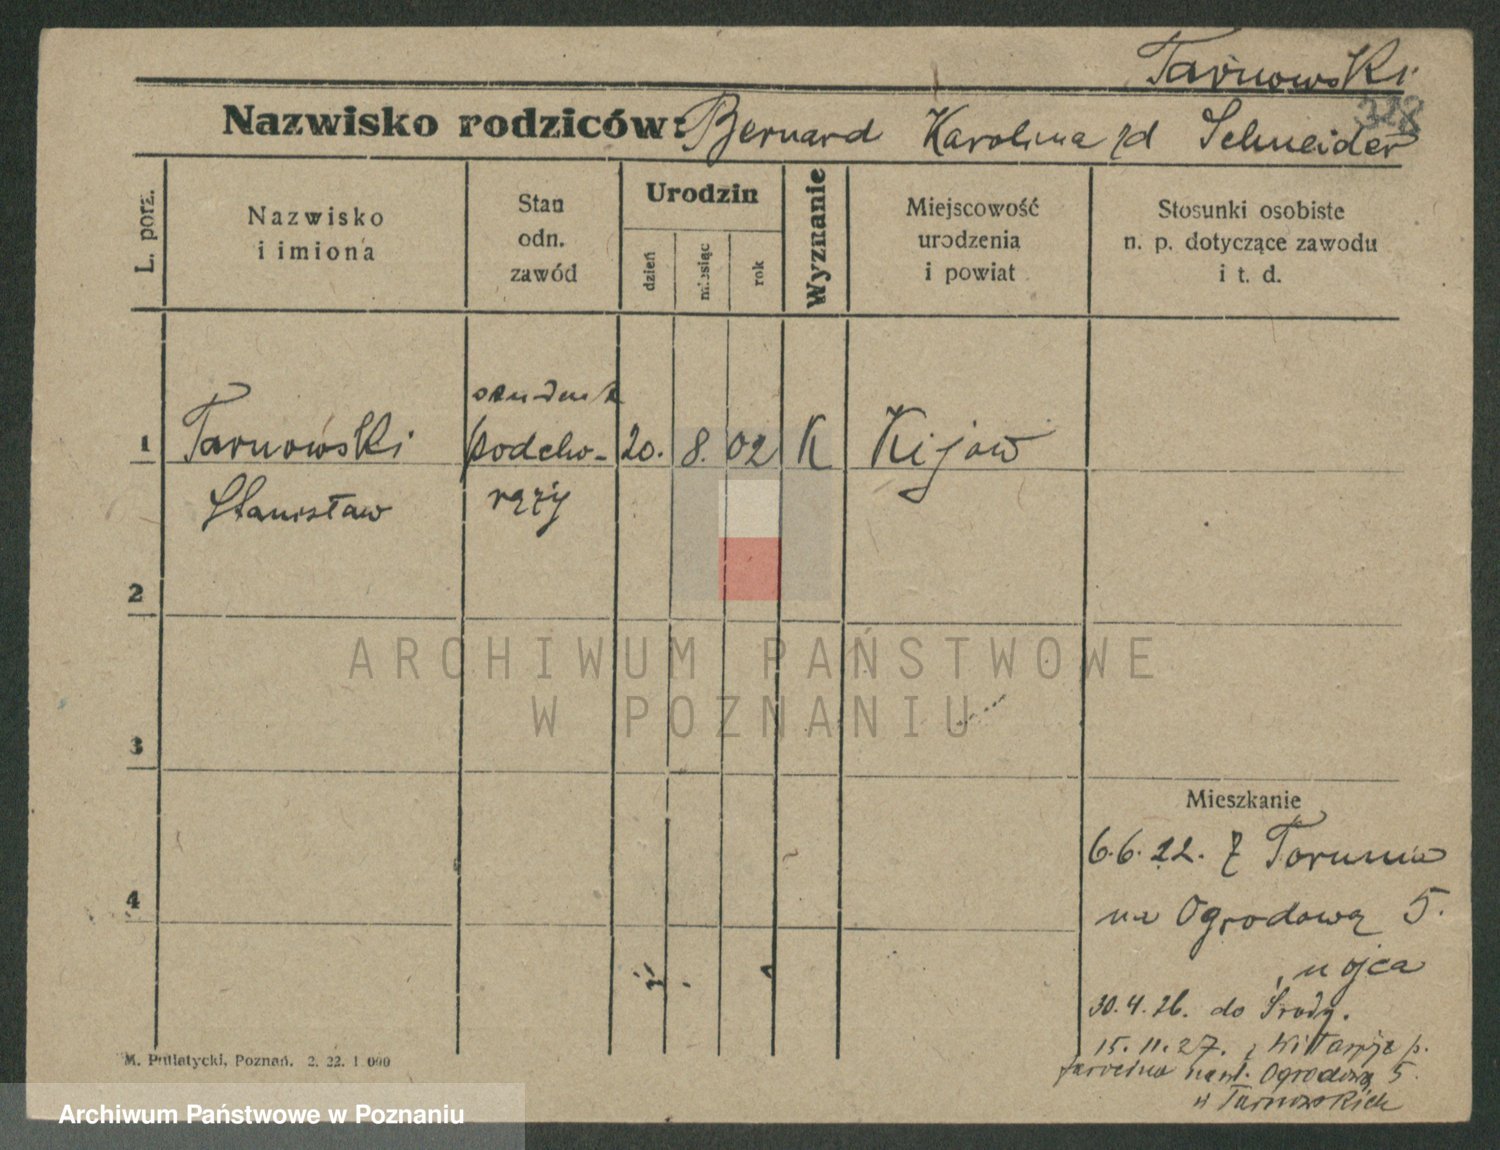 Tarnowski
328
Nazwisko rodziców: Bernard Karolina zd Schneider
L. porz.
Nazwisko
i imiona
Stan
odn.
zawód
Urodzin
dzień
miesiąc
rok
Wyznanie
Miejscowość
urodzenia
i powiat
Stosunki osobiste
n. p. dotyczące zawodu
i t. d.
student
1 Tarnowski podcho- 20. 8. 02 K Kijow
Stanisław rąży
2
ARCHIWUM PAŃSTWOWE
W POZNANIU
3
Mieszkanie
6.6.22. z Torunia
4
na Ogrodową 5.
u ojca
30.4.26. do Środy.
15.11.27. z Witaszyc p.
Jarocina nawr. Ogrodowa 5
u Tarnowskich
M. Putiatycki, Poznań. 2. 22. 1 000
Archiwum Państwowe w Poznaniu